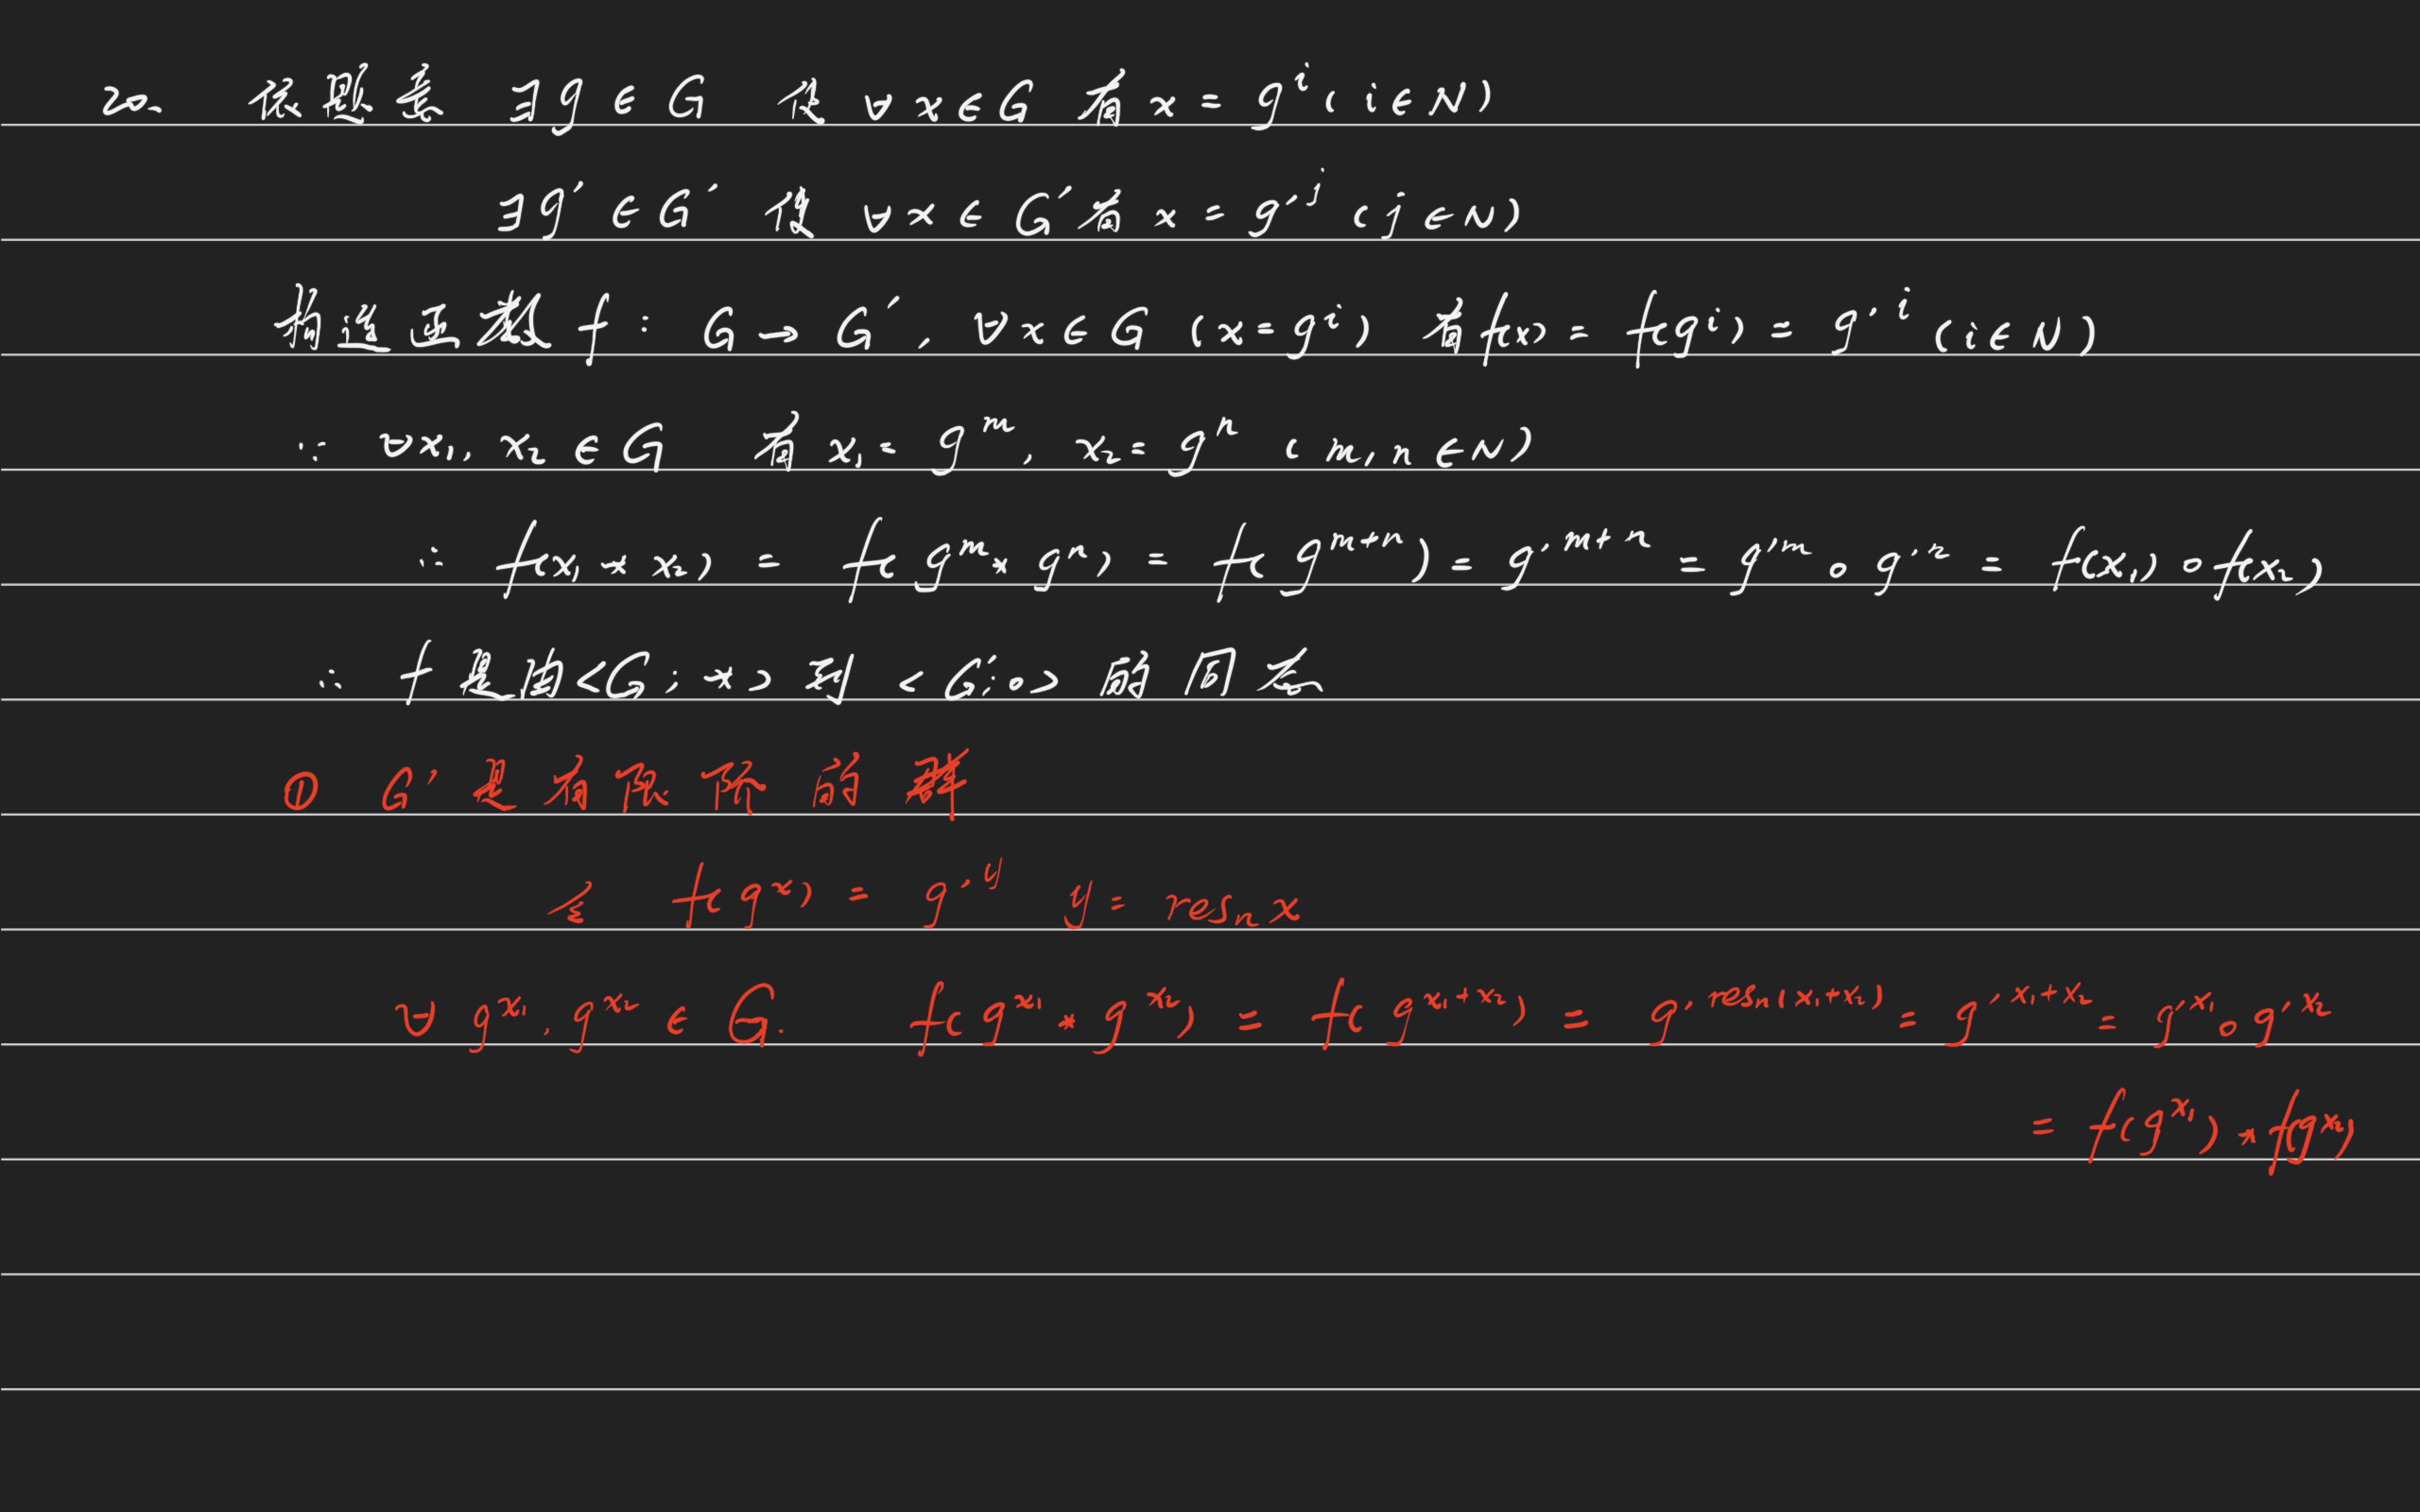 20. 依题意 ∃g∈G 使 ∀x∈G 有 x = gⁱ (i∈N)
∃g′∈G′ 使 ∀x∈G′ 有 x = g′ʲ (j∈N)
构造函数 f: G→G′, ∀x∈G (x=gⁱ) 有 f(x) = f(gⁱ) = g′ⁱ (i∈N)
∵ ∀x₁, x₂∈G 有 x₁ = gᵐ, x₂ = gⁿ (m,n∈N)
∴ f(x₁*x₂) = f(gᵐ*gⁿ) = f(gᵐ⁺ⁿ) = g′ᵐ⁺ⁿ = g′ᵐ∘g′ⁿ = f(x₁)∘f(x₂)
∴ f是由<G;*>到<G′;∘>的同态
① G′是有限阶的群
令 f(gˣ) = g′ʸ y = resₙx
∀ g^x₁, g^x₂ ∈ G. f(g^x₁ * g^x₂) = f(g^(x₁+x₂)) = g′^resₙ(x₁+x₂) = g′^(x₁+x₂) = g′^x₁ ∘ g′^x₂
= f(g^x₁) * f(g^x₂)